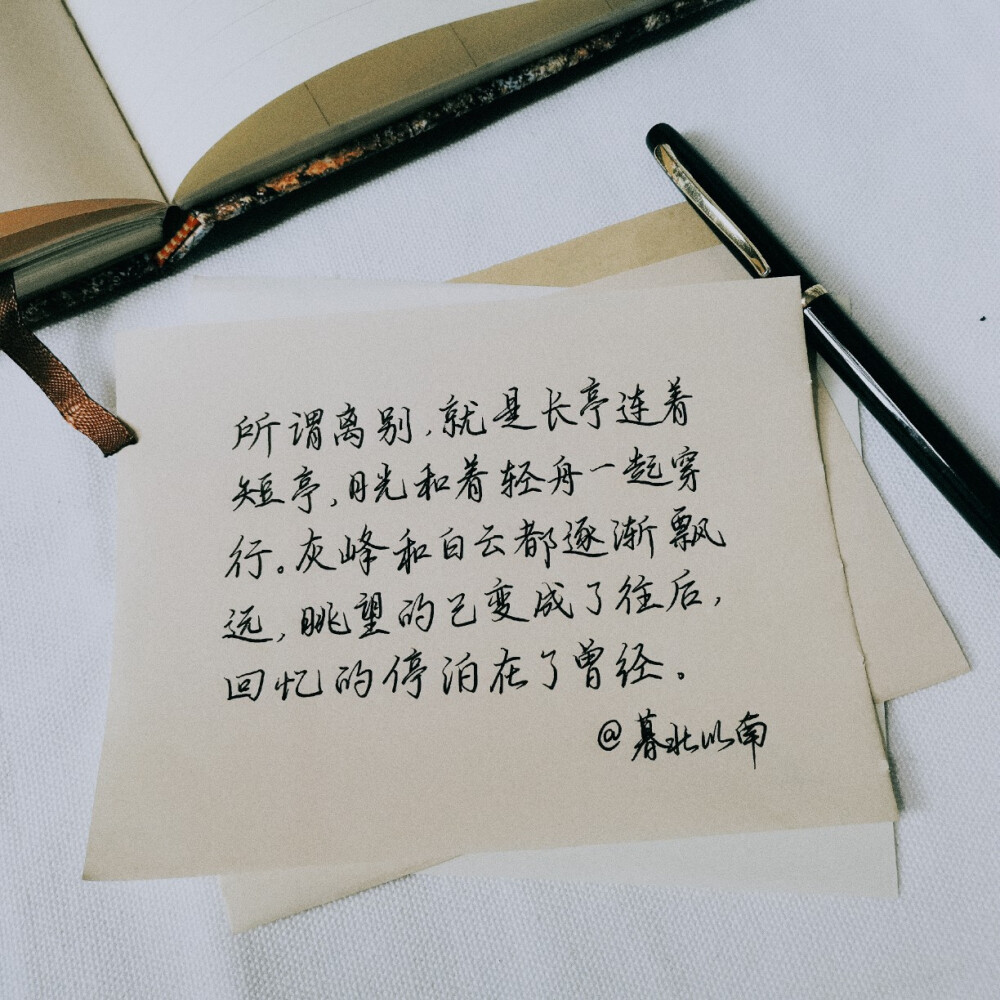 所谓离别,就是长亭连着
短亭,月光和着轻舟一起穿
行。灰峰和白云都逐渐飘
远,眺望的已变成了往后,
回忆的停泊在了曾经。
@暮北以南